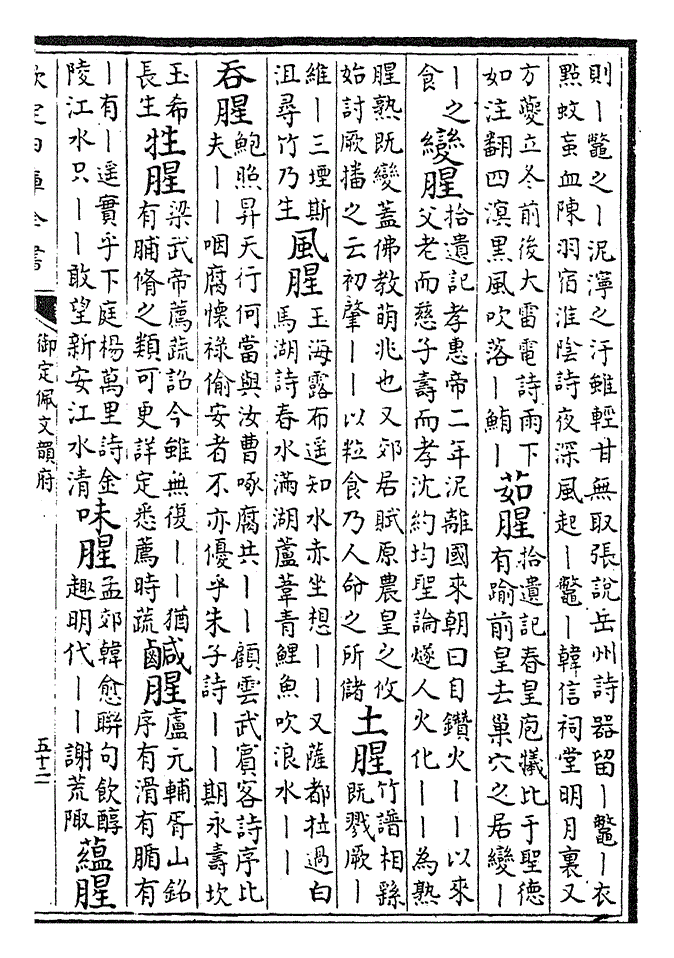 則｜鼈之｜泥濘之汙雖輕甘無取張說岳州詩器留｜鼈｜衣
點蚊䖟血陳羽宿淮陰詩夜深風起｜鼈｜韓信祠堂明月裏又
方夔立冬前後大雷電詩雨下
如注翻四溟黑風吹落｜鮹｜
茹腥
拾遺記春皇庖犧比于聖德
有踰前皇去巢穴之居變｜
｜之
食
變腥
拾遺記孝惠帝二年泥離國來朝曰自鑽火｜｜以來
父老而慈子壽而孝沈約均聖論燧人火化｜｜為熟
腥熟既變蓋佛教萌兆也又郊居賦原農皇之攸
始討厥播之云初肇｜｜以粒食乃人命之所儲
土腥
竹譜相繇
既戮厥｜
維｜三堙斯
沮尋竹乃生
風腥
玉海露布遥知水赤坐想｜｜又薩都拉過白
馬湖詩春水滿湖蘆葦青鯉魚吹浪水｜｜
吞腥
鮑照昇天行何當與汝曹啄腐共｜｜顧雲武賓客詩序比
夫｜｜咽腐懷祿偷安者不亦優乎朱子詩｜｜期永壽坎
玉希
長生
牲腥
梁武帝薦蔬詔今雖無復｜｜猶
有脯脩之類可更詳定悉薦時蔬
鹹腥
盧元輔胥山銘
序有滑有腯有
｜有｜遥實乎下庭楊萬里詩金
陵江水只｜｜敢望新安江水清
味腥
孟郊韓愈聯句飲醇
趣明代｜｜謝荒陬
蘊腥
欽定四庫全書
御定佩文韻府
五十二